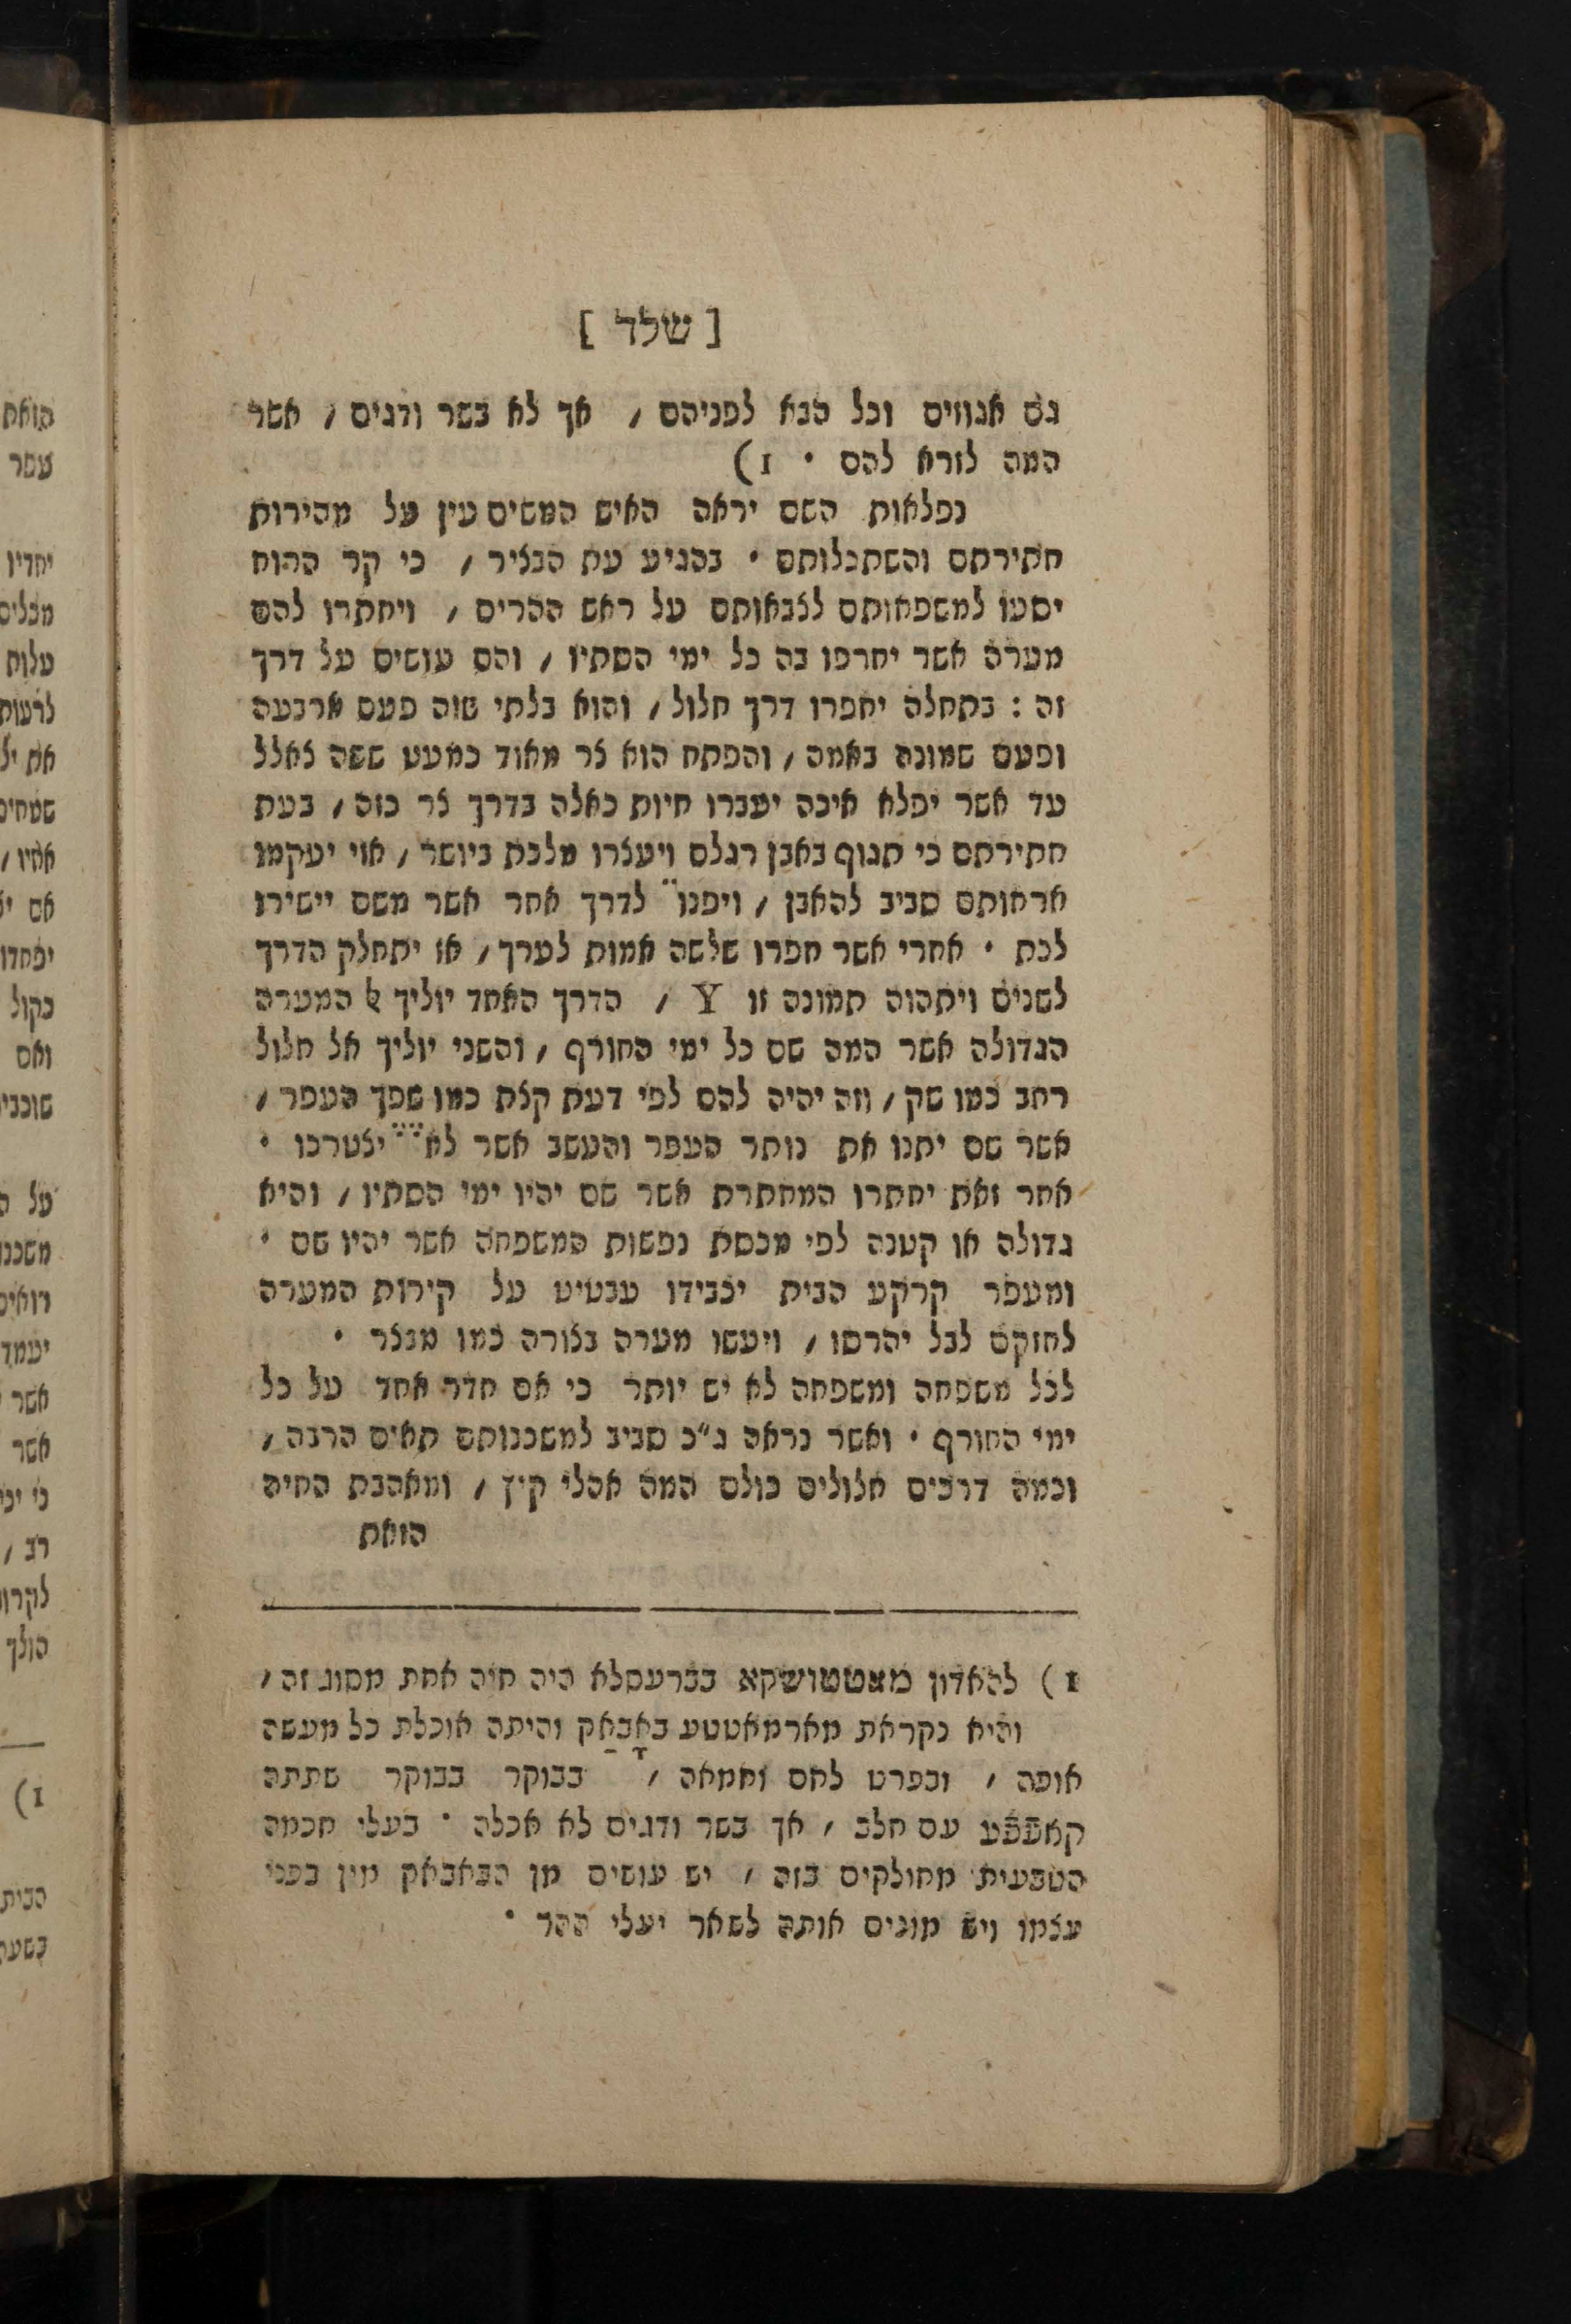 [ שלד ]
גם אגוזים וכל הבא לפניהם / אך לא בשר ודגים / אשר
המה לזרא להם • 1)
נפלאות השם יראה האיש המשים עין על מהירות
חתירתם והשתכלותם • בהגיע עת הבציר / כי קר הרוח
יסעו למשפחותם לצבאותם על ראש ההרים / ויחתרו להם
מערה אשר יחרפו בה כל ימי הסתיו / והם עושים על דרך
זה : בתחלה יחפרו דרך חלול / והוא בלתי שוה פעם ארבעה
ופעם שמונה באמה / והפתח הוא צר מאוד כמעט ששה צאלל
עד אשר יפלא איכה יעברו חיות כאלה בדרך צר כזה / בעת
חתירתם כי תגוף באבן רגלם ויעצרו מלכת ביושר / אזי יעקמו
ארחותם סביב להאבן / ויפנו לדרך אחר אשר משם יישירו
לכת • אחרי אשר חפרו שלשה אמות לערך / אז יתחלק הדרך
לשנים ויתהוה תמונה זו Y / הדרך האחד יוליך אל המערה
הגדולה אשר המה שם כל ימי החורף / והשני יוליך אל חלול
רחב כמו שק / וזה יהיה להם לפי דעת קצת כמו שפך העפר /
אשר שם יתנו את נותר העפר והעשב אשר לא יצטרכו •
אחר זאת יחתרו המחתרת אשר שם יהיו ימי הסתיו / והיא
גדולה או קטנה לפי מכסת נפשות המשפחה אשר יהיו שם •
ומעפר קרקע הבית יכבידו עבטיט על קירות המערה
לחזקם לבל יהרסו / ויעשו מערה בצורה כמו מבצר •
לכל משפחה ומשפחה לא יש יותר כי אם חדר אחד על כל
ימי החורף • ואשר נראה ג"כ סביב למשכנותם תאים הרבה /
וכמה דרכים חלולים כולם המה אהלי קיץ / ומאהבת החיה
הזאת
1) להאדון מאטטושקא בברעסלא היה חיה אחת מסוג זה /
והיא נקראת מארמאטטע באבאק והיתה אוכלת כל מעשה
אופה / ובפרט לחם וחמאה / בבוקר בבוקר שתתה
קאפפע עם חלב / אך בשר ודגים לא אכלה • בעלי חכמה
הטבעית מחולקים בזה / יש עושים מן הבאבאק מין בפני
עצמו ויש מונים אותה לשאר יעלי ההר •